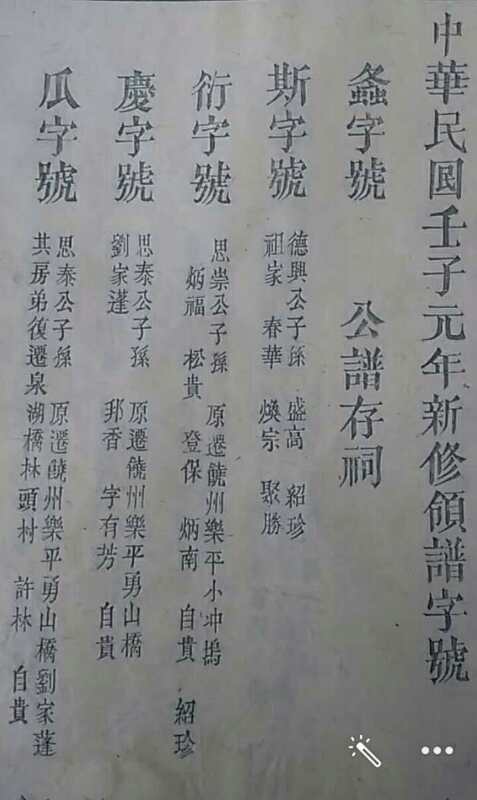 中華民囻壬子元年新修領譜字號
螽字號
公譜存祠
斯字號
德興公子孫 盛高 紹珍
祖家 春華 煥宗 聚勝
衍字號
思崇公子孫 原遷饒州樂平小冲塢
炳福 松貴 登保 炳南 自貴 紹珍
慶字號
思泰公子孫 原遷饒州樂平勇山橋
劉家蓬 邦香 字有芳 自貴
瓜字號
思泰公子孫 原遷饒州樂平勇山橋劉家蓬
其房弟復遷泉湖橋林頭村 許林 自貴